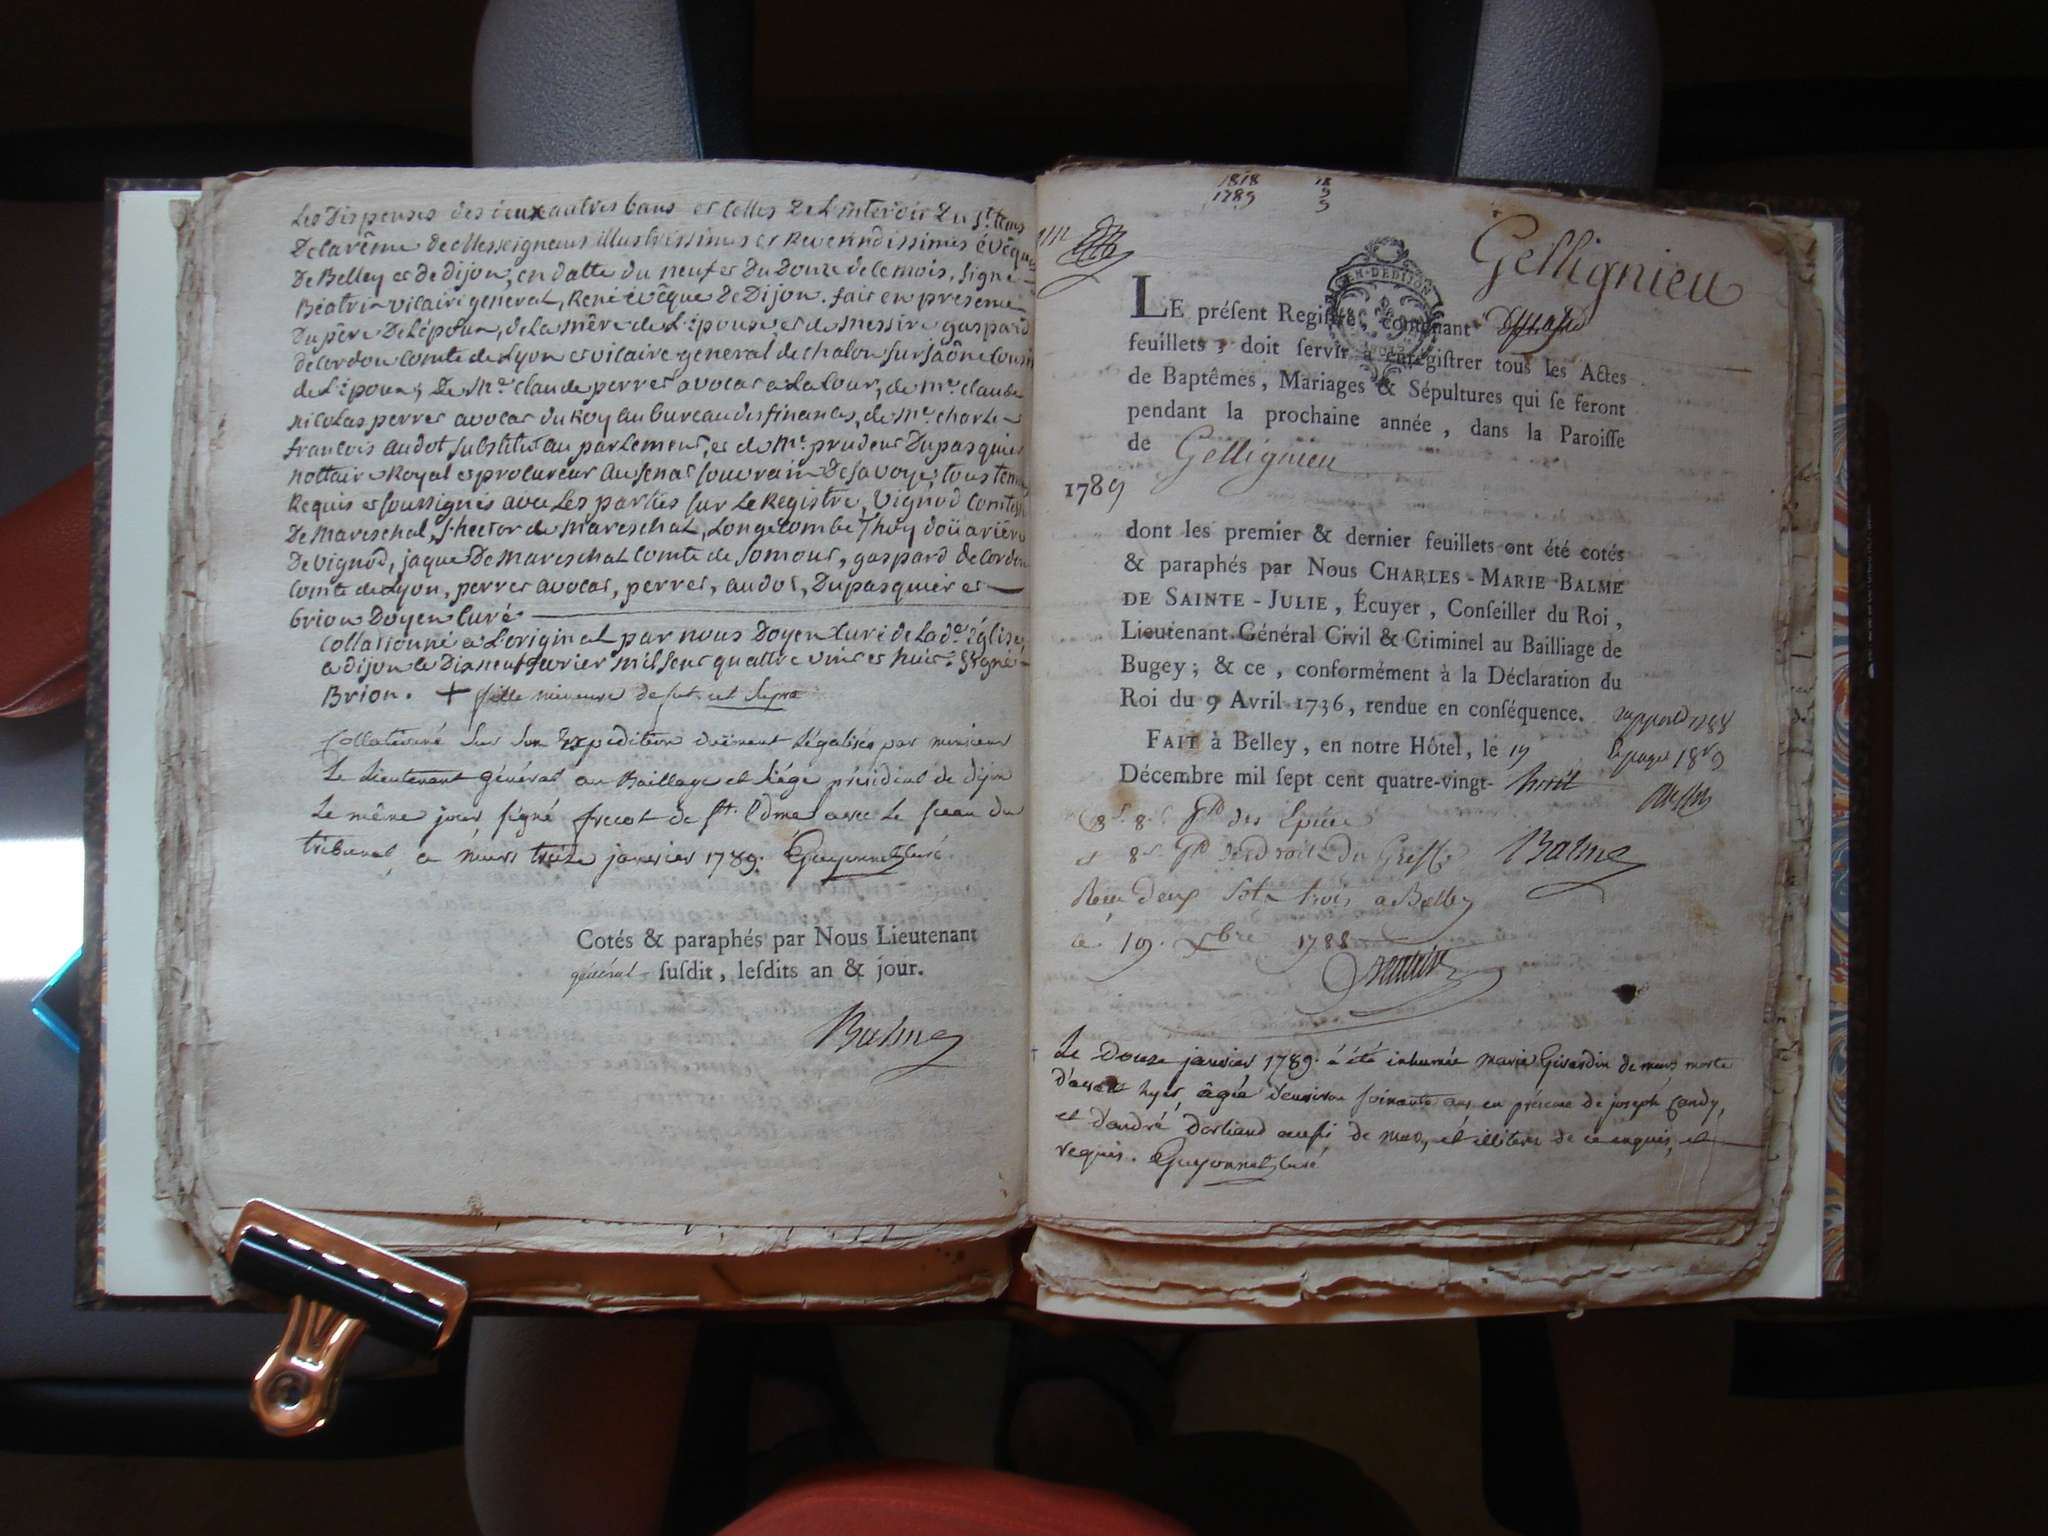 Les dispenses des deux autres bans et celles de L'interdit du st. tems
De carême de Messeigneurs illustrissimes et Reverendissimes évêques
De Belley et de dijon, en datte du neuf et du Douze de ce mois, signé
Béatrix vicaire general, René évêque de Dijon. fait en presence
Du père De L'époux, de la mère de L'épouse, et de messire gaspard
de cordon comte de Lyon et vicaire general de chalon sur saône cousin
de L'époux, De Me. claude perret avocat a La cour, de me. claude
nicolas perret avocat du Roy au bureau des finances, de Me. charle
francois audot substitut au parlement, et de Me. prudent Dupasquier
nottaire Royal et procureur au senat souverain De savoye, tous temoins
Requis et soussignés avec Les parties sur Le Registre, Vignod comtesse
De Mareschal, f. hector de Mareschal, Longecombe Thoy doüairière
De Vignod, jaque De Mareschal comte de somont, gaspard de cordon
comte de Lyon, perret avocat, perret, audot, Dupasquier et
brion Doyen curé.
collationné a L'original par nous Doyen curé de La de. église,
a dijon Le Dixneuf fevrier mil sept quattre vint et huit. signé
Brion. + fille mineure de fut. ut supra
Collationné sur son expédition duëment légalisée par monsieur
Le Lieutenant général au Baillage et siége présidial de dijon
Le même jour signé frecot de st. Edme avec Le sceau du
tribunal, a murs treize janvier 1789. Guyonnet curé
Cotés & paraphés par Nous Lieutenant
général susdit, lesdits an & jour.
Balme
1818
1789
18
9
9
Gellignieu
LE présent Registre, contenant
feuillets, doit servir à enregistrer tous les Actes
de Baptêmes, Mariages & Sépultures qui se feront
pendant la prochaine année, dans la Paroisse
de Gellignieu
1789
dont les premier & dernier feuillets ont été cotés
& paraphés par Nous CHARLES-MARIE BALME
DE SAINTE-JULIE, Écuyer, Conseiller du Roi,
Lieutenant Général Civil & Criminel au Bailliage de
Bugey; & ce, conformément à la Déclaration du
Roi du 9 Avril 1736, rendue en conséquence.
FAIT à Belley, en notre Hôtel, le 19
Décembre mil sept cent quatre-vingt-huit
Balme
Reçu deux sols trois a Belley
ce 19. Xbre 1788
Le Douze janvier 1789. à été inhumée marie Girardin de murs morte
d'avant hyer, âgée d'environ soixante ans en présence de joseph Candy,
et d'andré dorliand aussi de murs, et illiteres de ce enquis, et
requis. Guyonnet curé